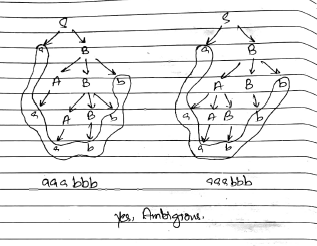 S S
a B a B
A B b A B b
a A B b a A B b
a b a b
aaabbb aaabbb
yes, Ambigrous.